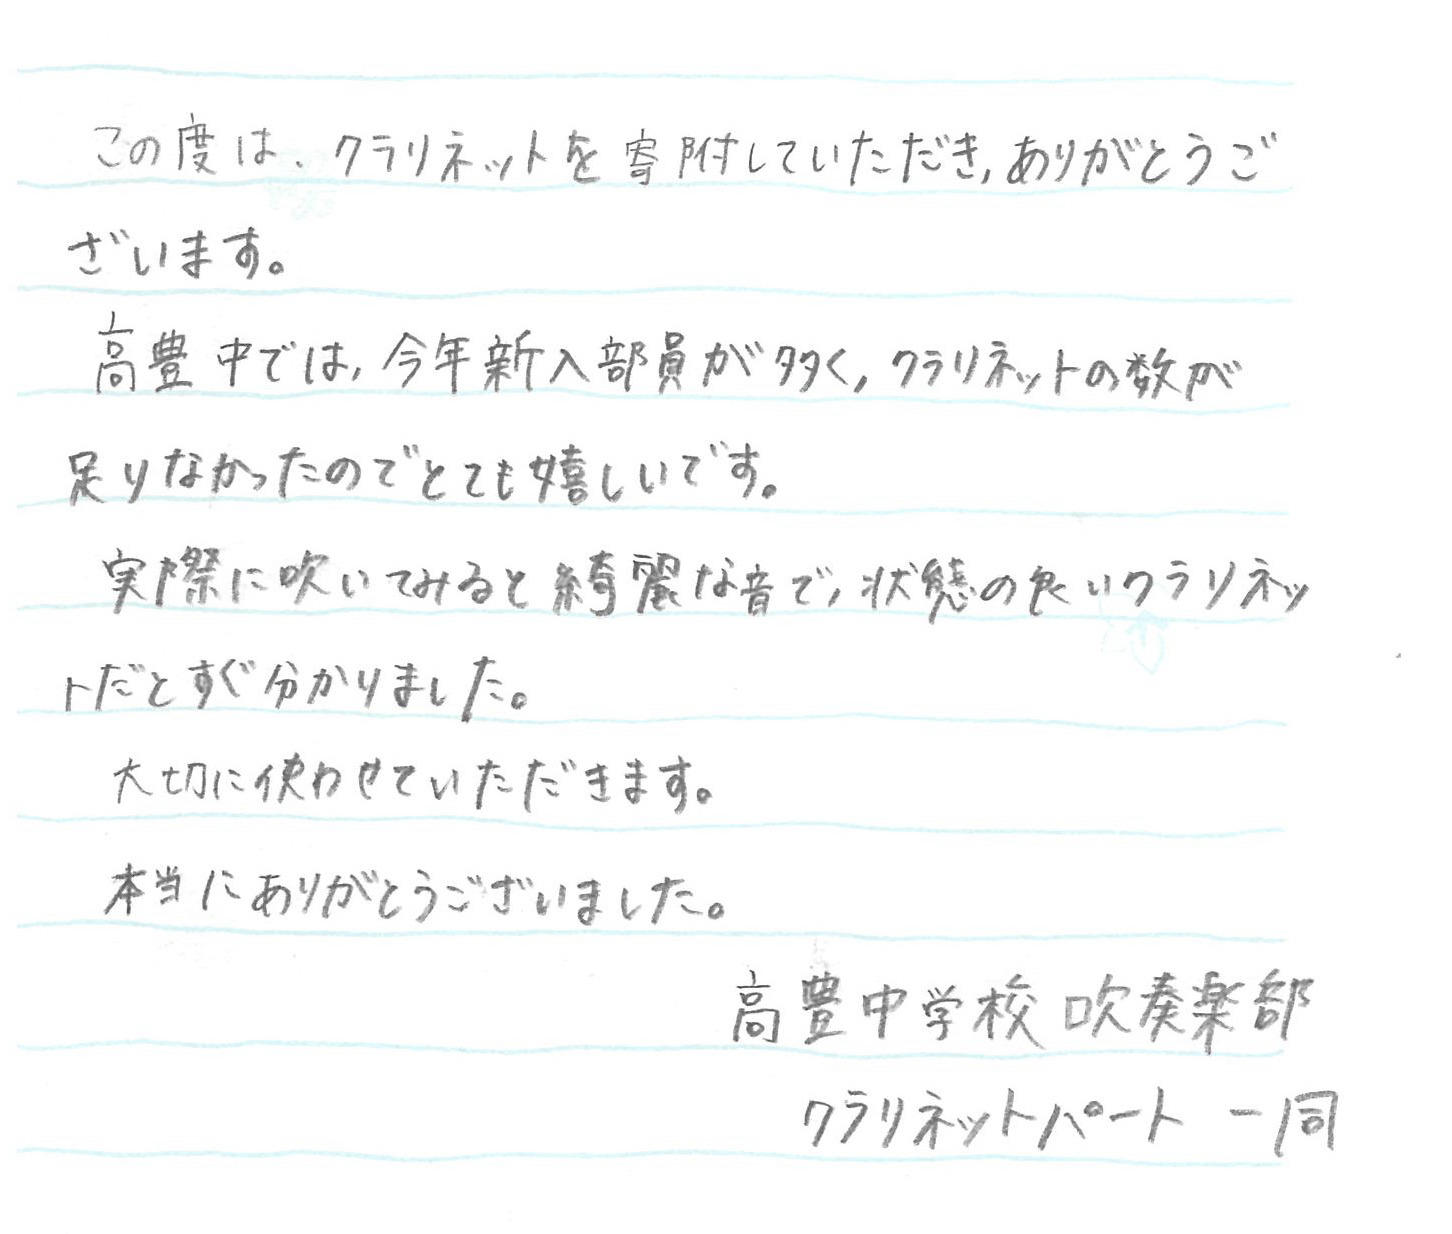 この度は、クラリネットを寄附していただき,ありがとうご
ざいます。
高豊中では,今年新入部員が多く,クラリネットの数が
足りなかったのでとても嬉しいです。
実際に吹いてみると綺麗な音で,状態の良いクラリネッ
トだとすぐ分かりました。
大切に使わせていただきます。
本当にありがとうございました。
高豊中学校 吹奏楽部
クラリネットパート 一同